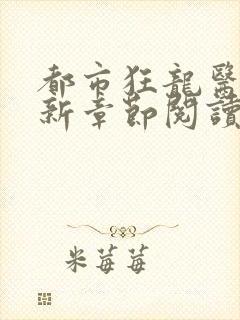 都市狂龍醫
新章節閱讀
米莓莓